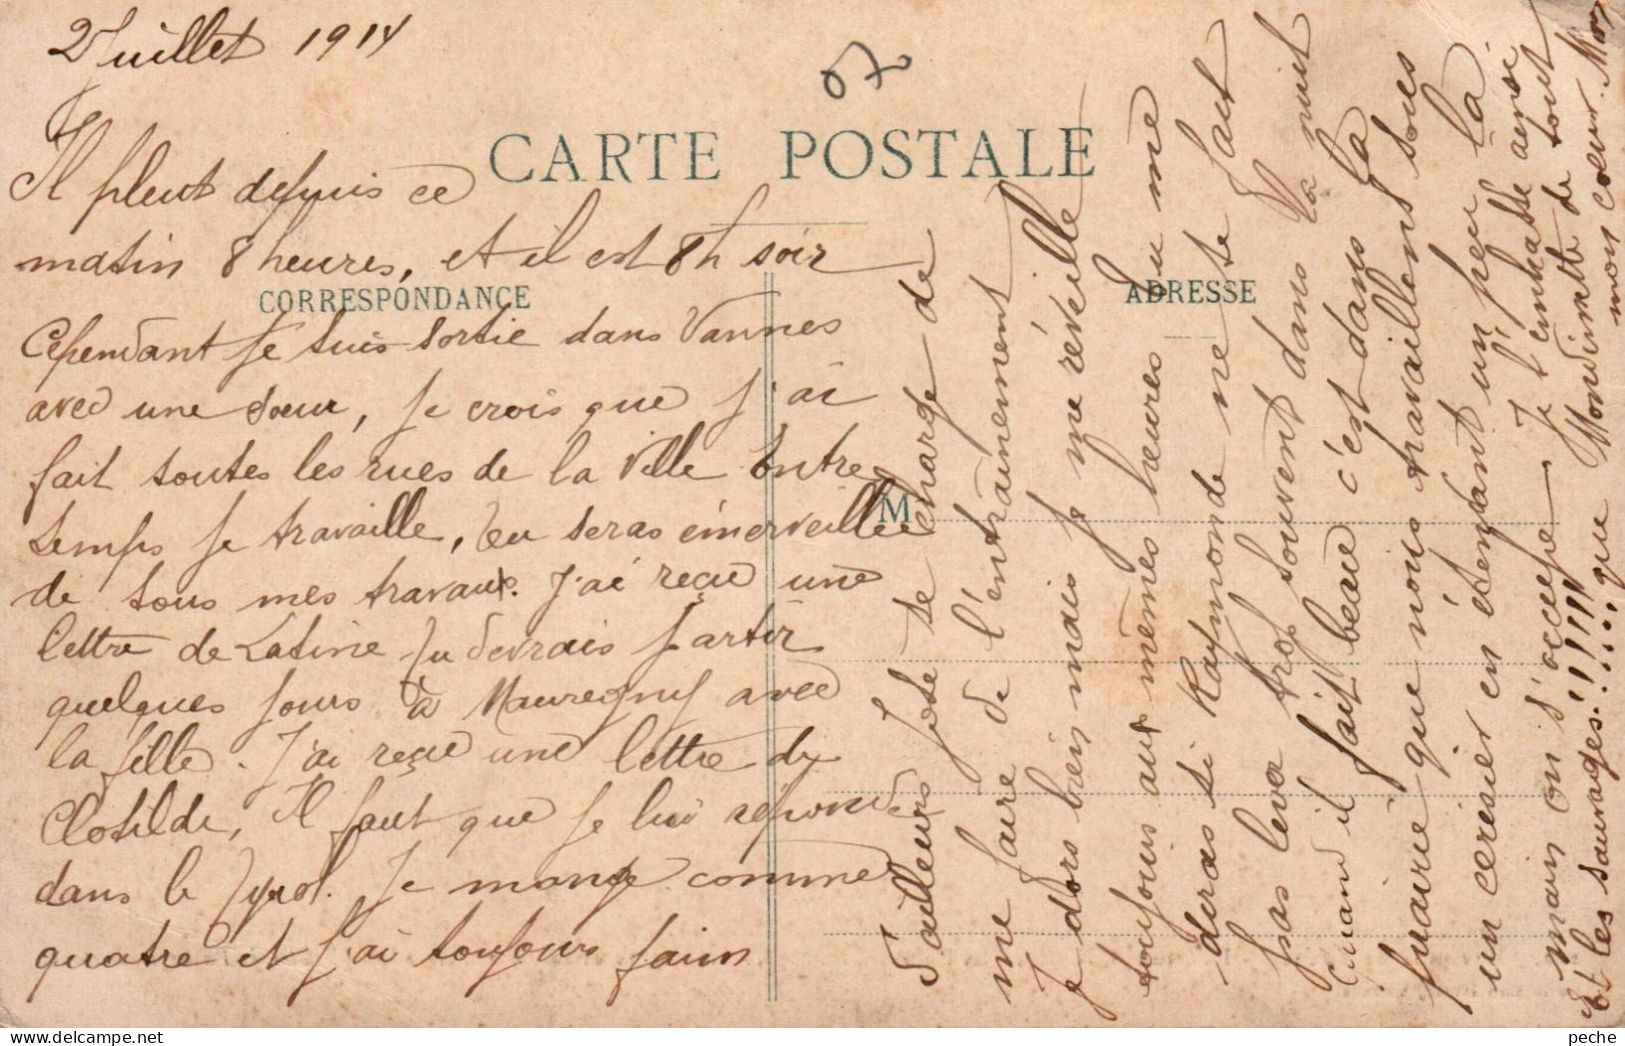 2 Juillet 1914
CARTE POSTALE
Il pleut depuis ce
matin 8 heures, et il est 8h soir
CORRESPONDANCE
Cependant je suis sortie dans Vannes
avec une soeur, je crois que j'ai
fait toutes les rues de la ville Entre
temps je travaille, tu seras émerveillée
de tous mes travaux. J'ai reçu une
lettre de Latine tu devrais partir
quelques jours à Mauregny avec
la fille. J'ai reçu une lettre de
Clotilde, Il faut que je lui réponde
dans le Tyrol. Je mange comme
quatre et j'ai toujours faim
ADRESSE
M
d'ailleurs José se charge de
me faire de l'entraînement
Je dors bien mais je me réveille
toujours aux mêmes heures Tu me
diras si Raymonde ne te fait
pas lever trop souvent dans la nuit
Quand il fait beau c'est dans la
prairie que nous travaillons sous
un cerisier en étendant un peu la
main on s'occupe Je t'embrasse ainsi
Et les sauvages!!!!!! que Moudinette de tout
mon coeur.
peche